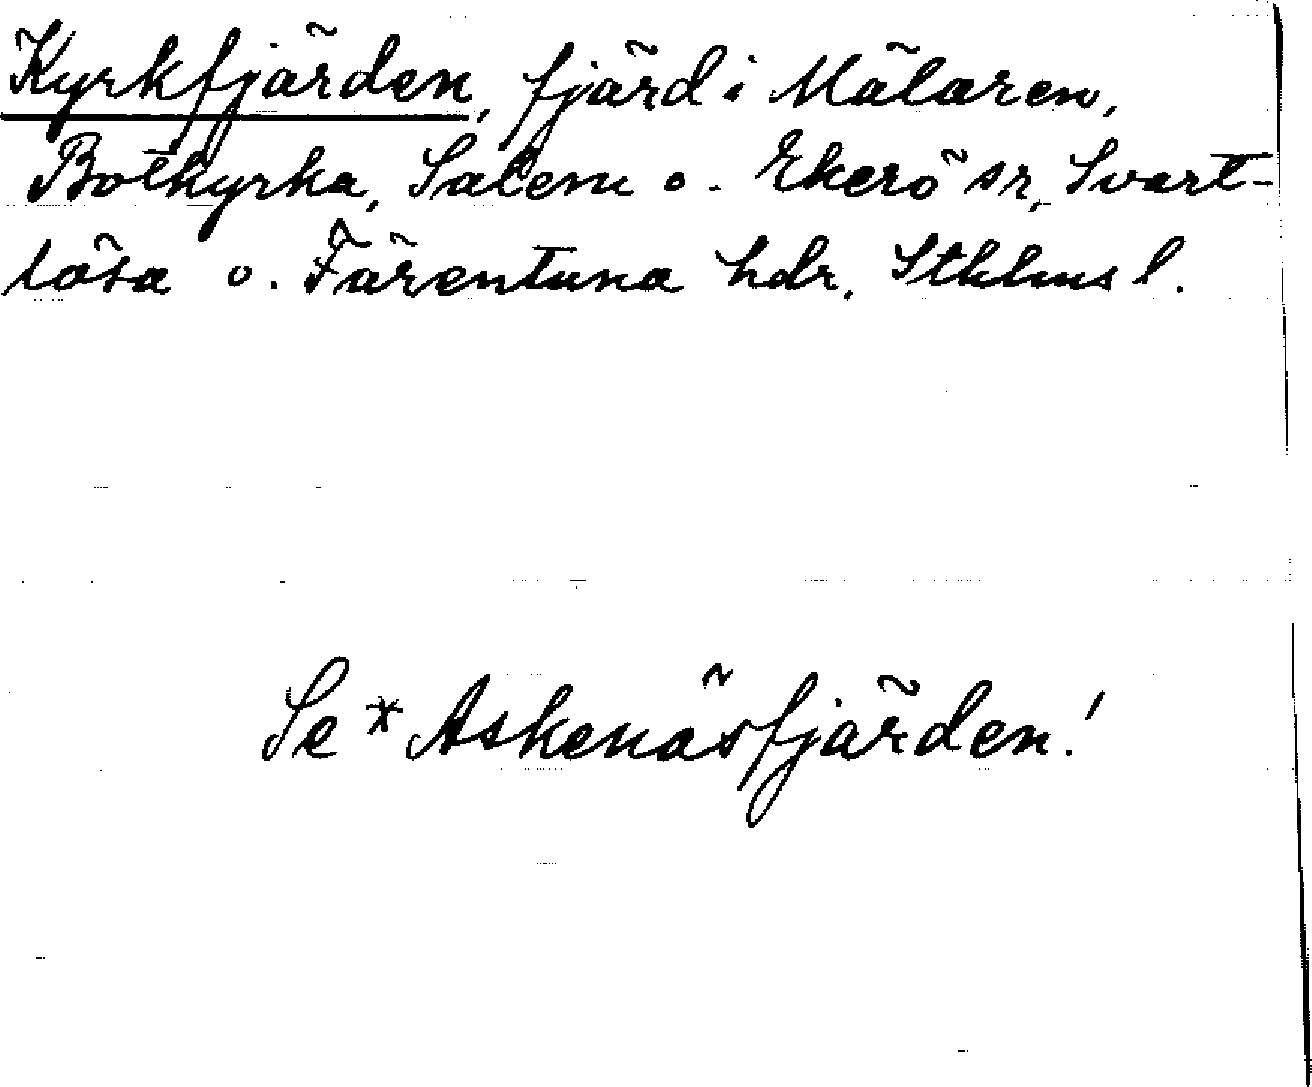 Kyrkfjärden, fjärd i Mälaren,
Botkyrka, Salem o. Ekerö sr, Svart-
lösa o. Färentuna hdr, Sthlms l.
Se * Askenäsfjärden!